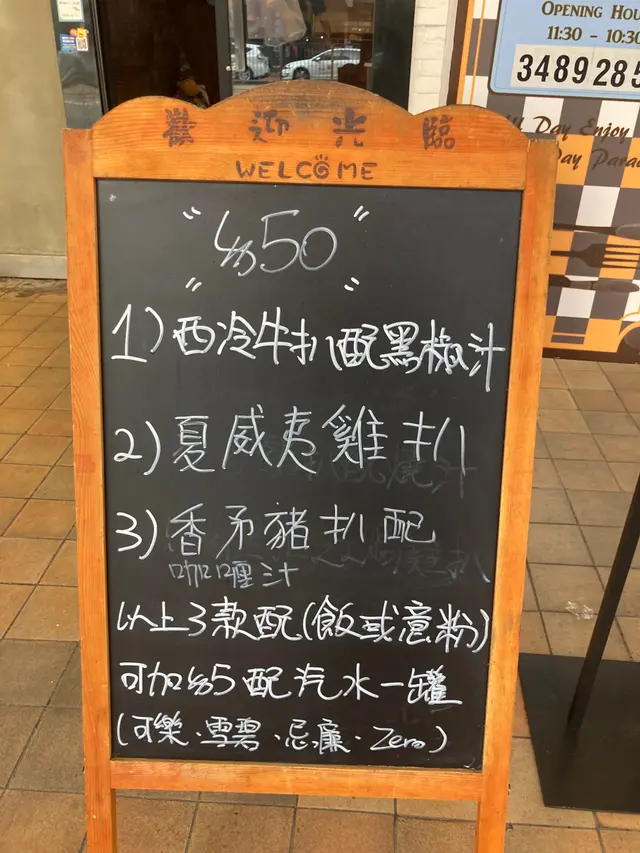 OPENING HOU
11:30 - 10:30
3489285
Day Enjoy
Day Para
歡迎光臨
WELCOME
"$50"
1) 西冷牛扒配黑椒汁
2) 夏威夷雞扒
3) 香矛豬扒配
咖喱汁
以上3款配(飯或意粉)
可加$5配汽水一罐
(可樂.雪碧.忌廉.Zero)